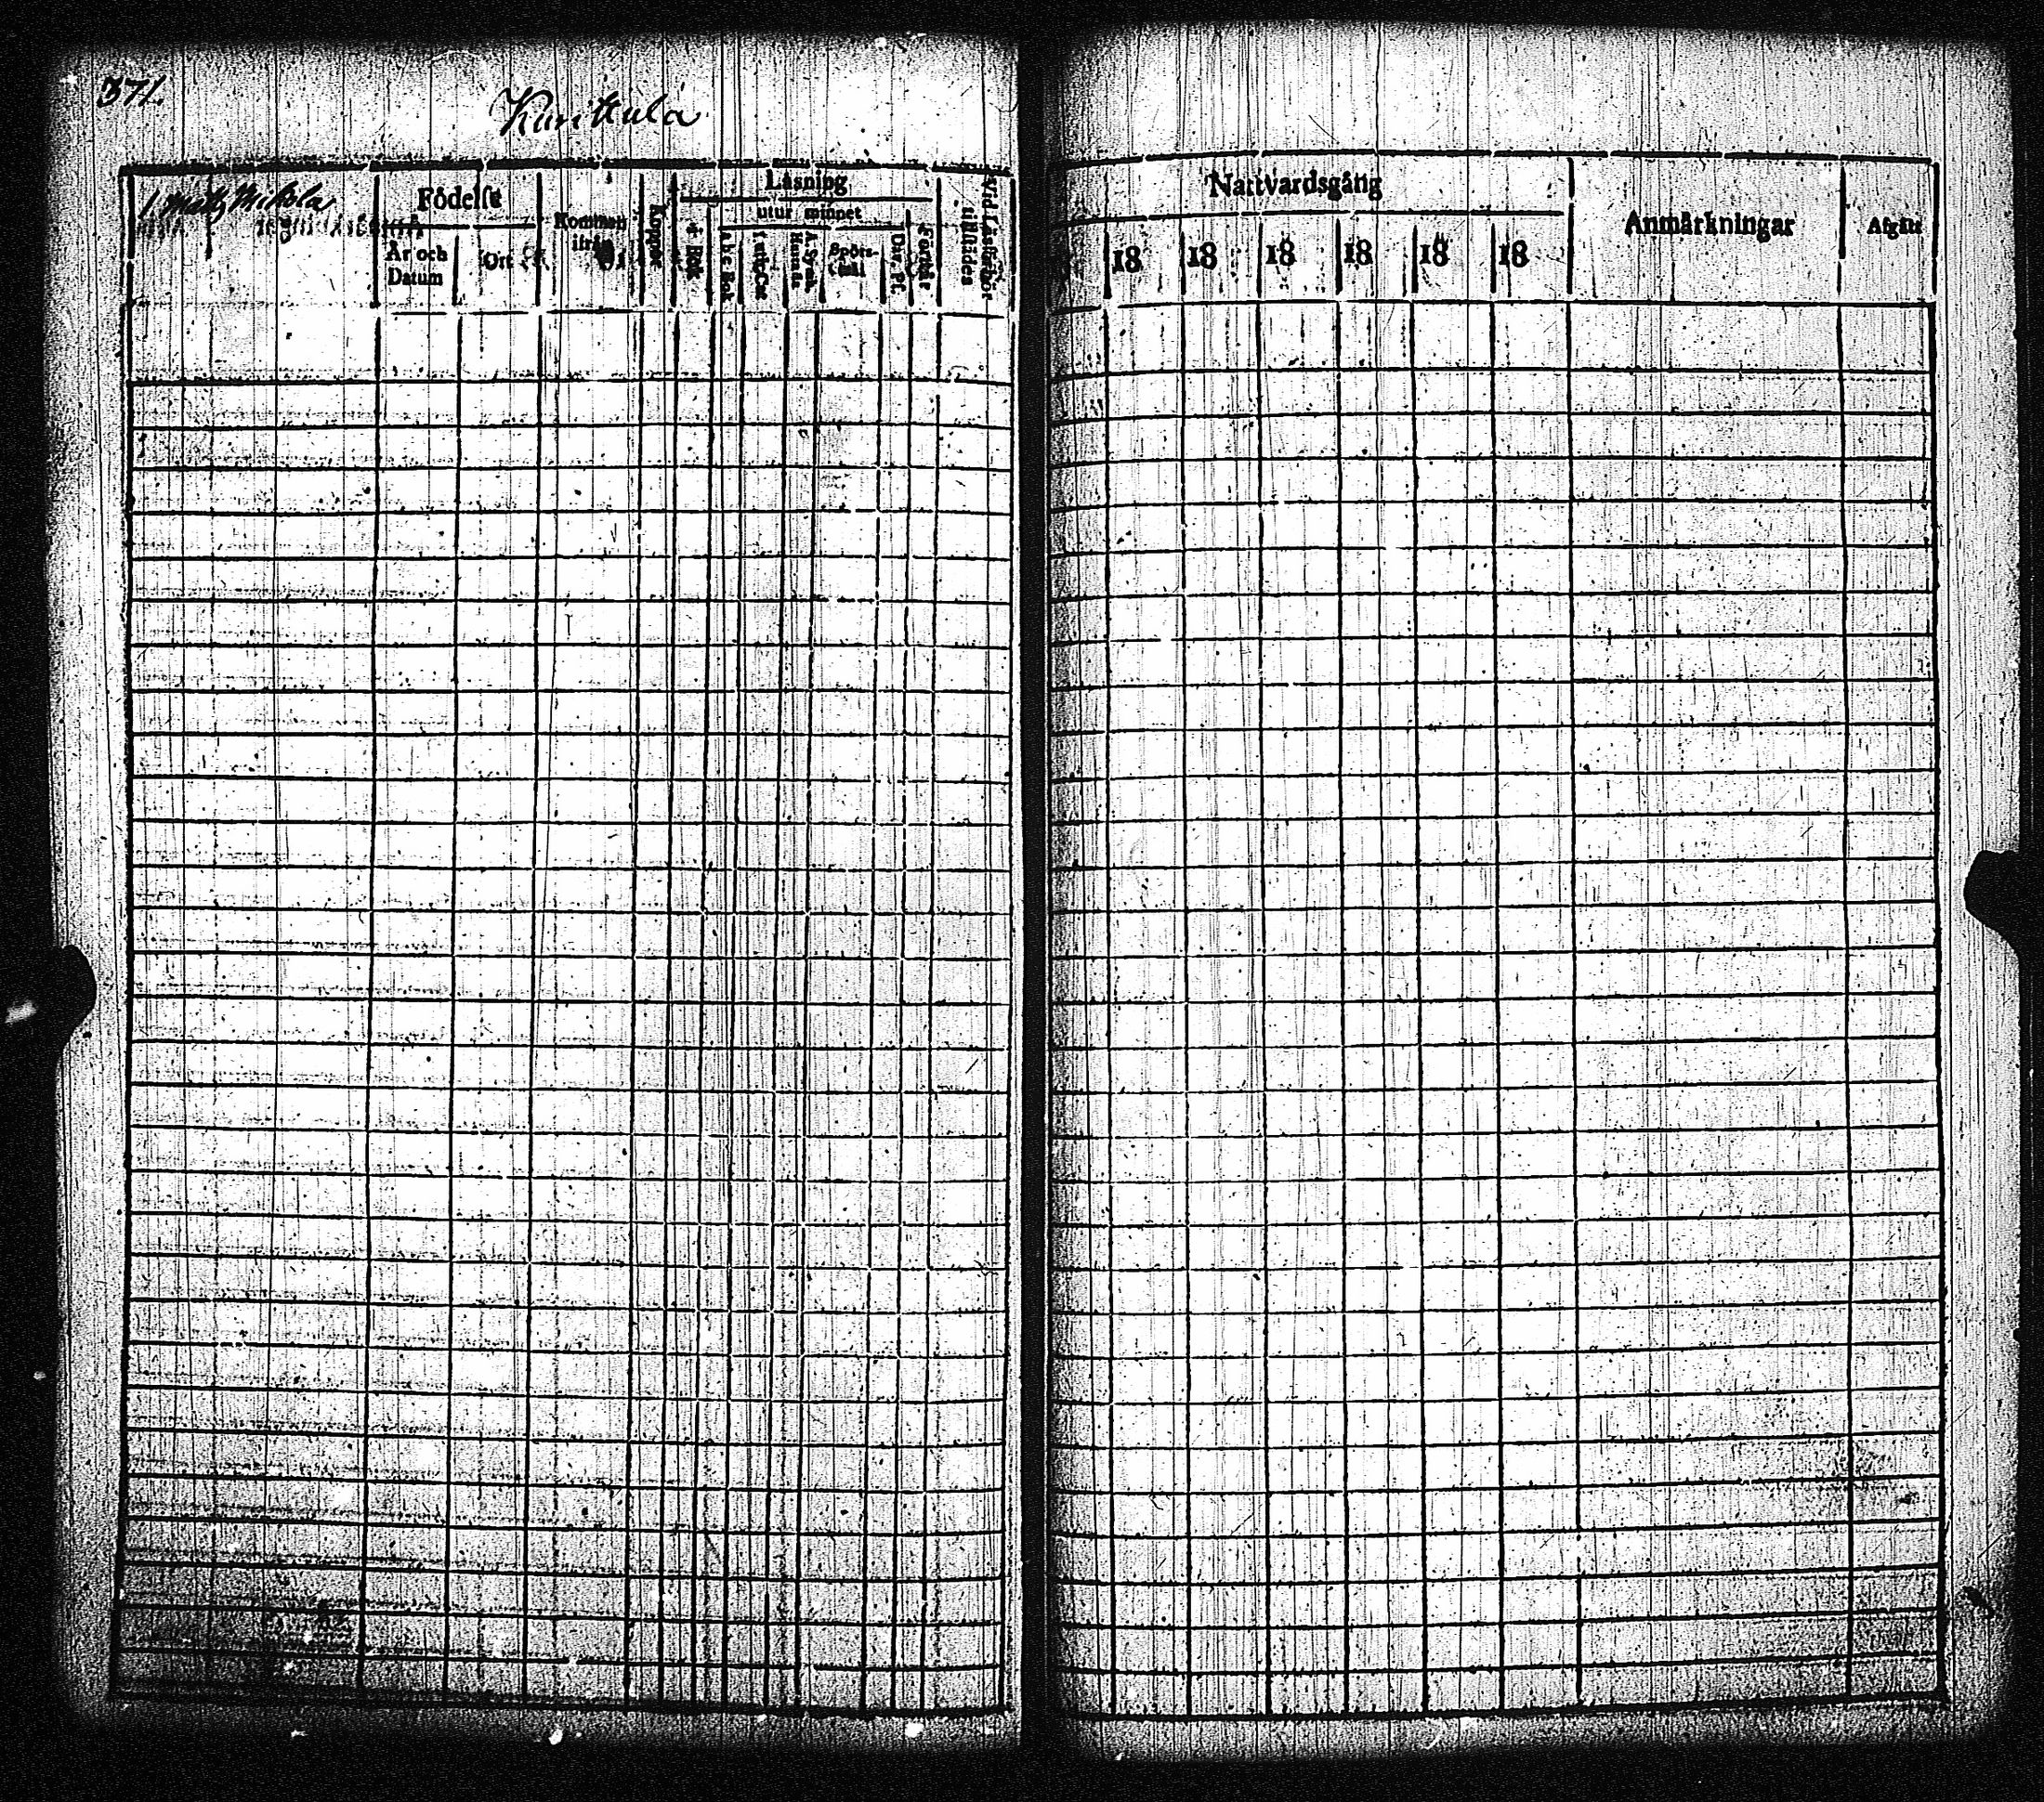 371.
Kurittula
1 Matts Mikola
Födelse
År och Datum
Ort
Kommen ifrån
Koppor
Läsning
utur minnet
+ Bok
A b c Bok
Luth. Cat
A. Symb. Hust.
Spörsmål
Dav. Ps.
Förstår
Vid Läsförhör tillstädes
Nattvardsgång
18 18 18 18 18 18
Anmärkningar
Afgått